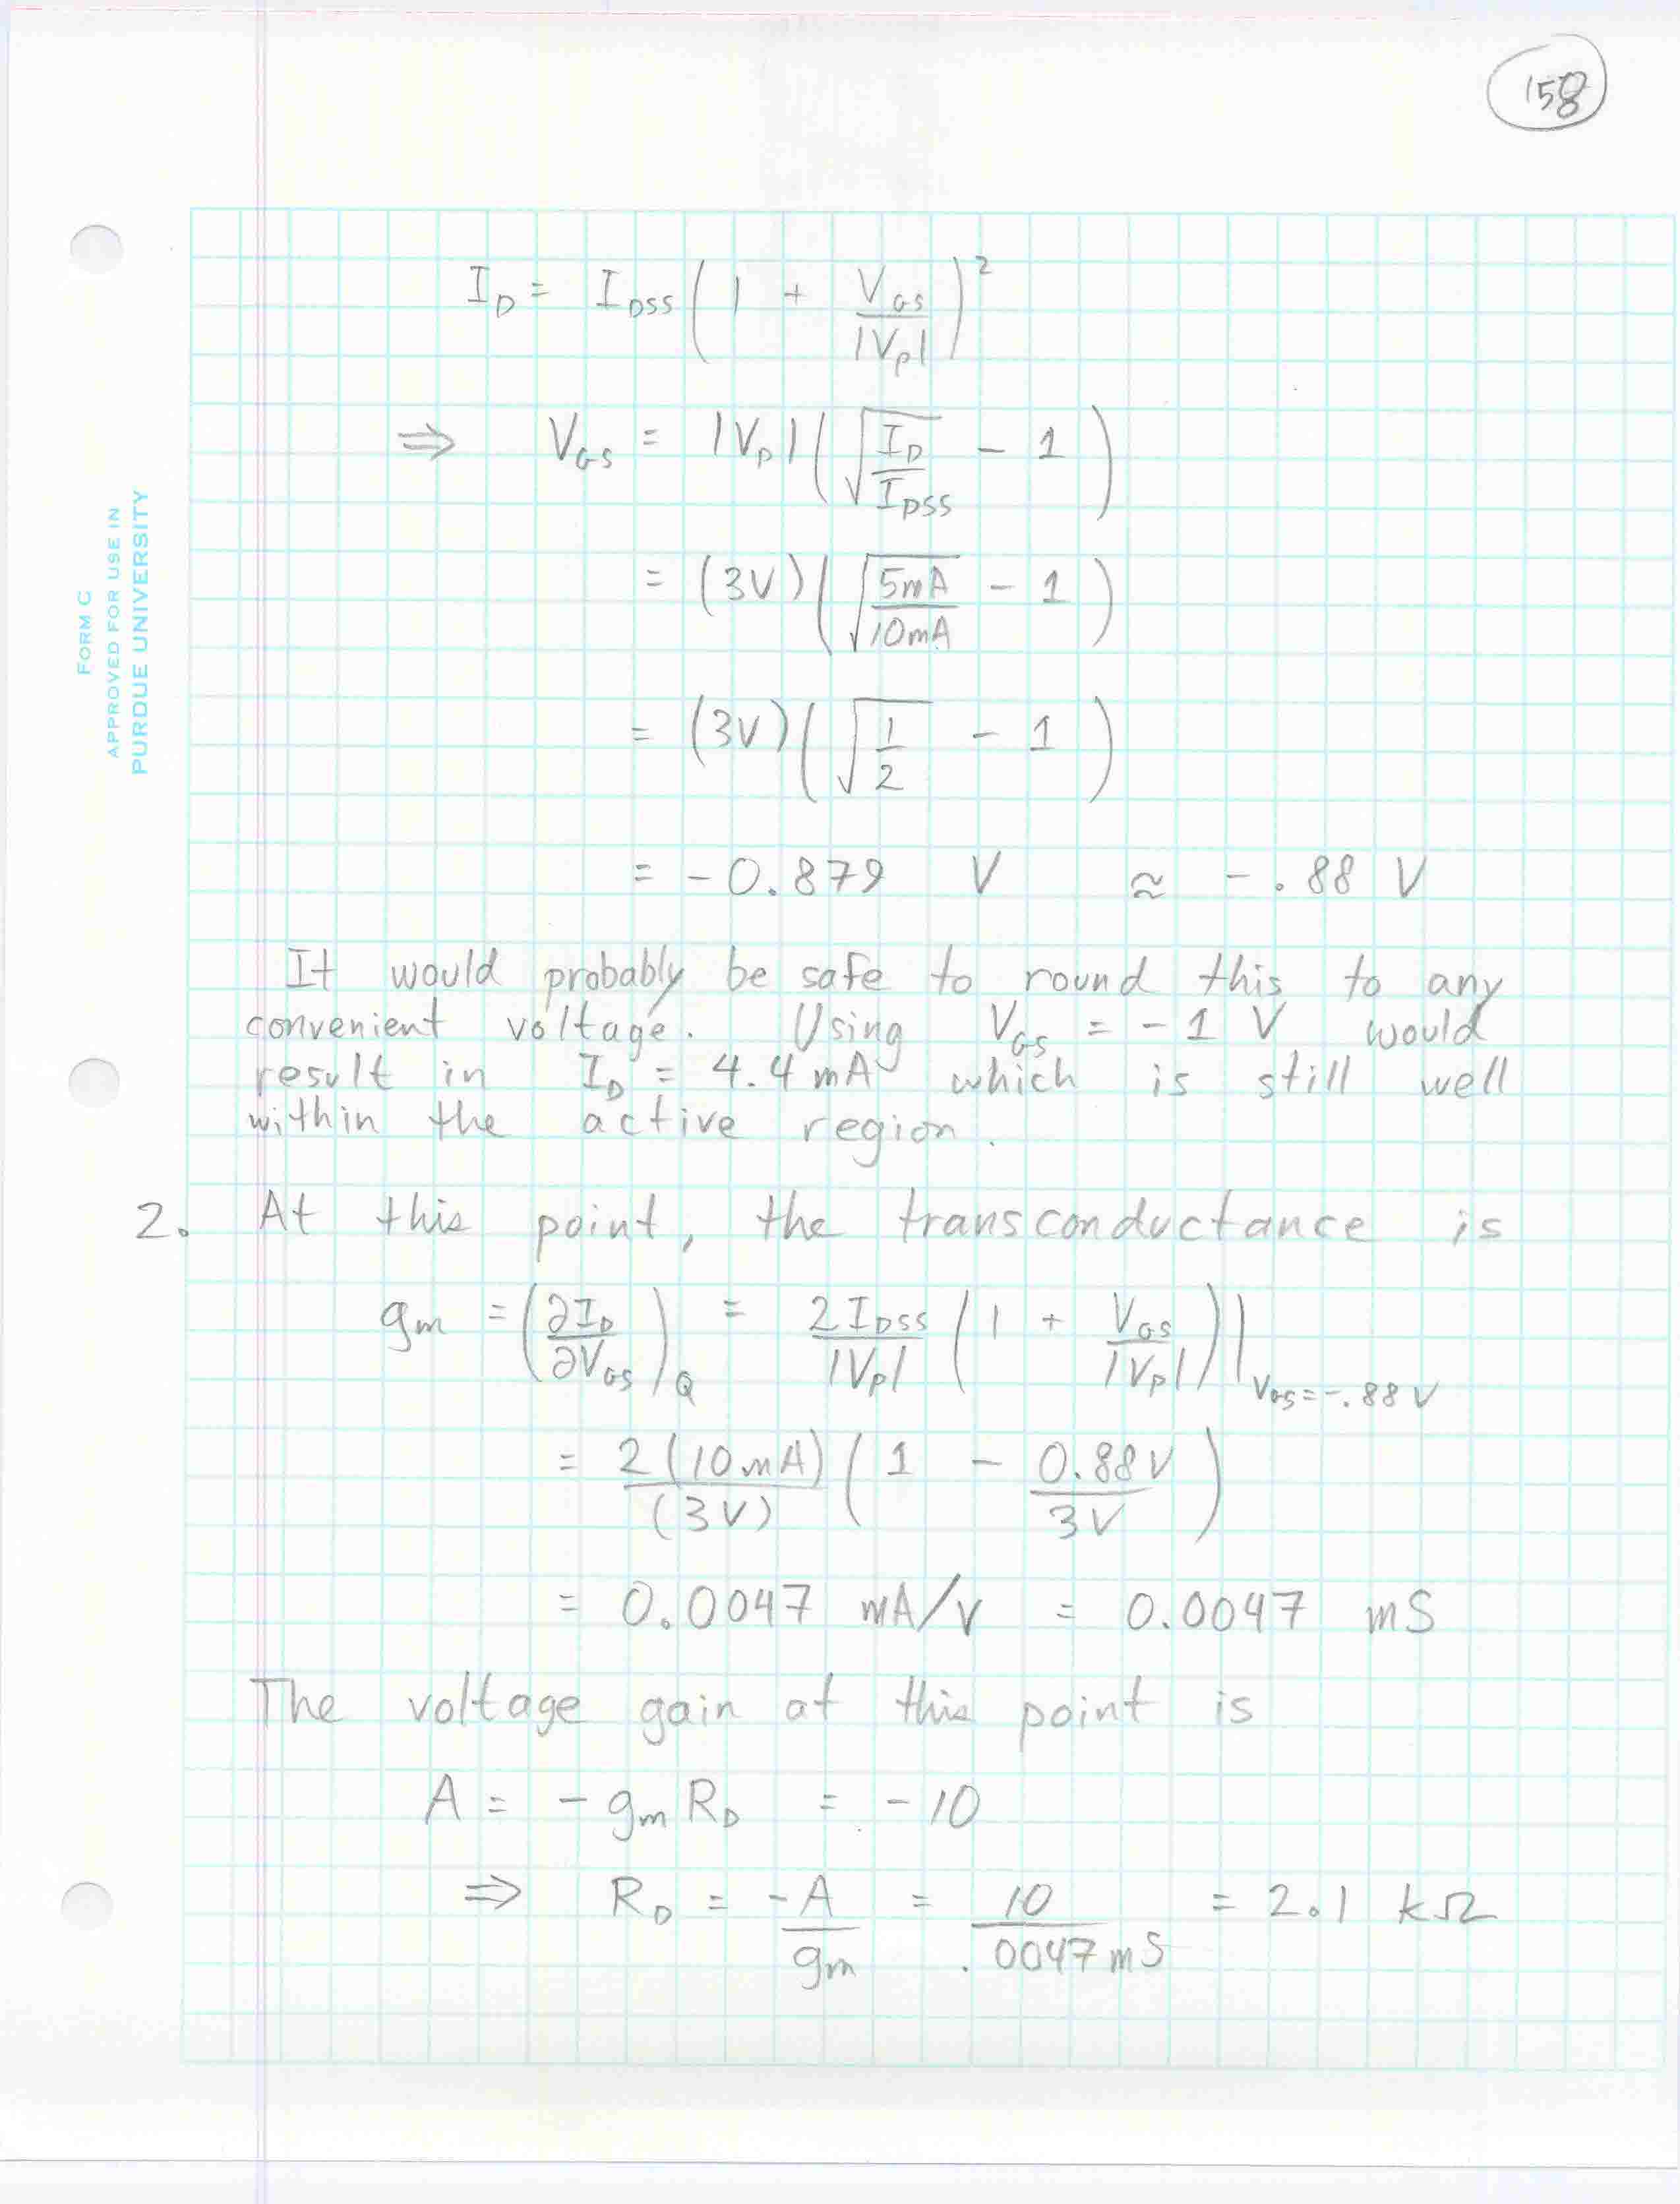 158
FORM C
APPROVED FOR USE IN
PURDUE UNIVERSITY
I_D = I_DSS (1 + V_GS/|V_P|)^2
⇒ V_GS = |V_P| (√(I_D/I_DSS) - 1)
= (3V) (√(5mA/10mA) - 1)
= (3V) (√(1/2) - 1)
= -0.879 V ≈ -.88 V
It would probably be safe to round this to any
convenient voltage. Using V_GS = -1 V would
result in I_D = 4.4 mA which is still well
within the active region.
2. At this point, the transconductance is
g_m = (∂I_D/∂V_GS)_Q = 2I_DSS/|V_P| (1 + V_GS/|V_P|)|_V_GS=-.88 V
= 2(10mA)/(3V) (1 - 0.88V/3V)
= 0.0047 mA/V = 0.0047 mS
The voltage gain at this point is
A = -g_m R_D = -10
⇒ R_D = -A/g_m = 10/.0047mS = 2.1 kΩ